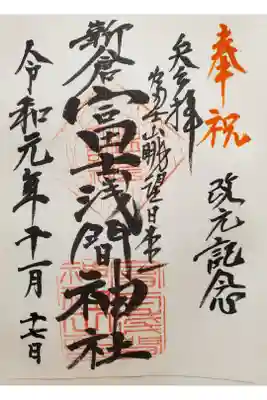 奉祝
改元記念
拝
富士山眺望日本一
新倉富士浅間神社
令和元年十一月十七日